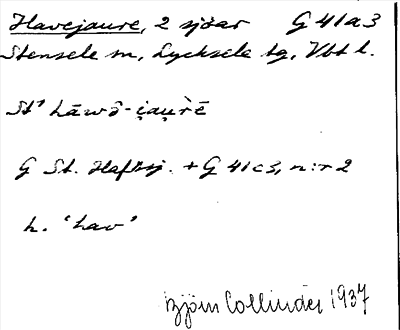 Havejaure, 2 sjöar G 41 a 3
Stensele sn, Lycksele tg, Vbt l.
St' hāwō-i̯au̯rē
G St. Hafträj. + G 41 c 3, n:r 2
h. 'hav'
Björn Collinder 1937